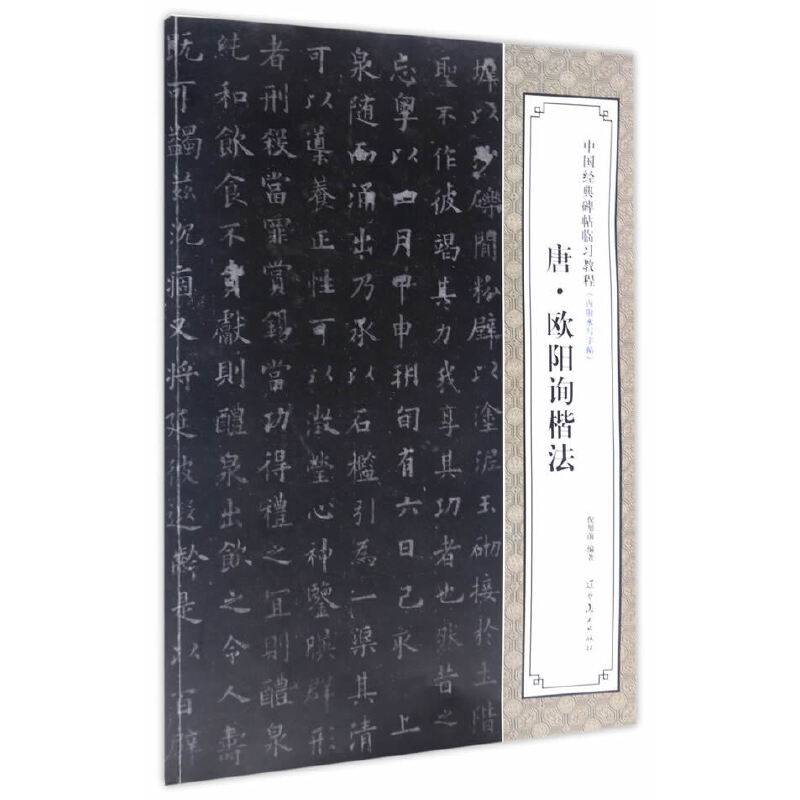 中国经典碑帖临习教程（内附水写字帖）
唐·欧阳询楷法
编著
辽宁美术出版社
墀以沙礫間粉壁以塗泥玉砌接於土階
聖不作彼竭其力我享其功者也然昔之
忘粵以四月甲申朔旬有六日己亥上
泉隨而涌出乃承以石檻引為一渠其清
可以導養正性可以澂瑩心神鑒暎群形
者刑殺當罪賞錫當功得禮之宜則醴泉
純和飲食不貢獻則醴泉出飲之令人壽
既可蠲茲沉痼又將延彼遐齡是以百辟